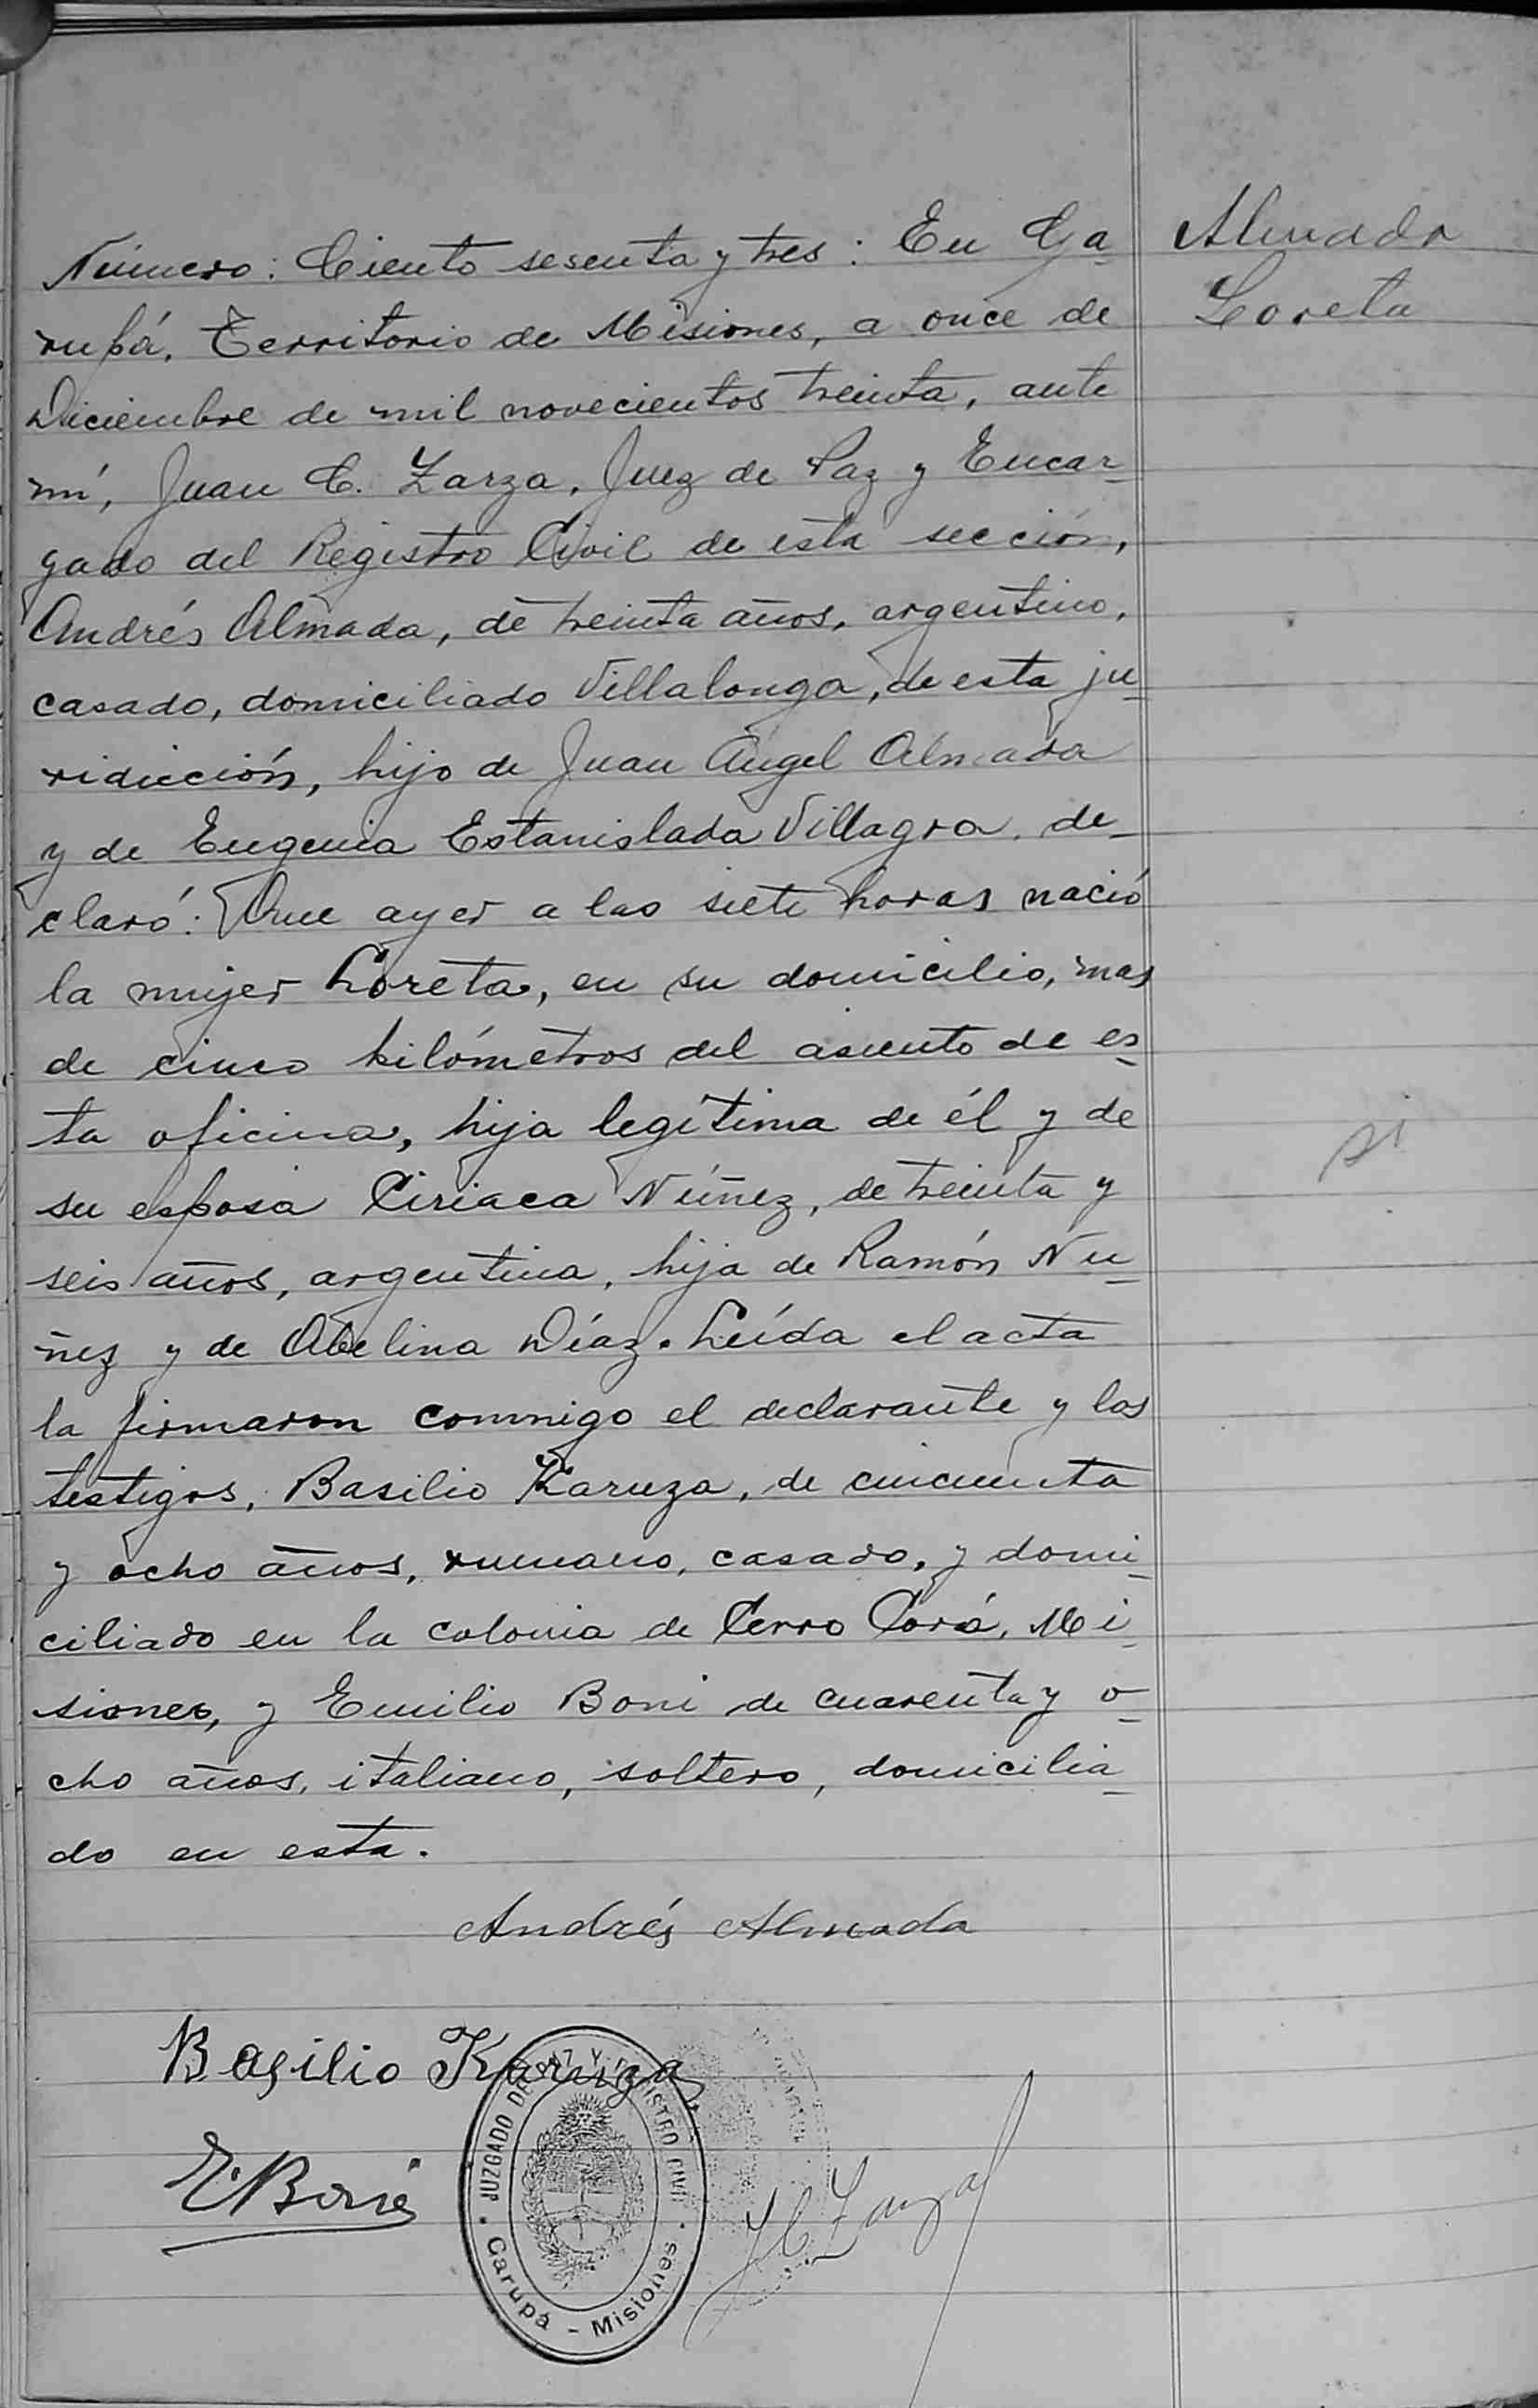 Almada
Loreta
Número: Ciento sesenta y tres: En Ga-
rupá, Territorio de Misiones, a once de
Diciembre de mil novecientos treinta, ante
mí, Juan C. Zarza, Juez de Paz y Encar-
gado del Registro Civil de esta sección,
Andrés Almada, de treinta años, argentino,
casado, domiciliado Villalonga, de esta ju-
ridicción, hijo de Juan Angel Almada
y de Eugenia Estanislada Villagra, de-
claró: Que ayer a las siete horas nació
la mujer Loreta, en su domicilio, mas
de cinco kilómetros del asiento de es-
ta oficina, hija legítima de él y de
su esposa Ciriaca Núñez, de treinta y
seis años, argentina, hija de Ramón Nu-
ñez y de Abelina Díaz. Leída el acta
la firmaron conmigo el declarante y los
testigos, Basilio Karuza, de cincuenta
y ocho años, rumano, casado, y domi-
ciliado en la colonia de Cerro Corá, Mi-
siones, y Emilio Boni de cuarenta y o-
cho años, italiano, soltero, domicilia-
do en esta.
si
Andrés Almada
Basilio Karuza
E. Boni
JCZarza
JUZGADO DE PAZ Y REGISTRO CIVIL
Garupá - Misiones